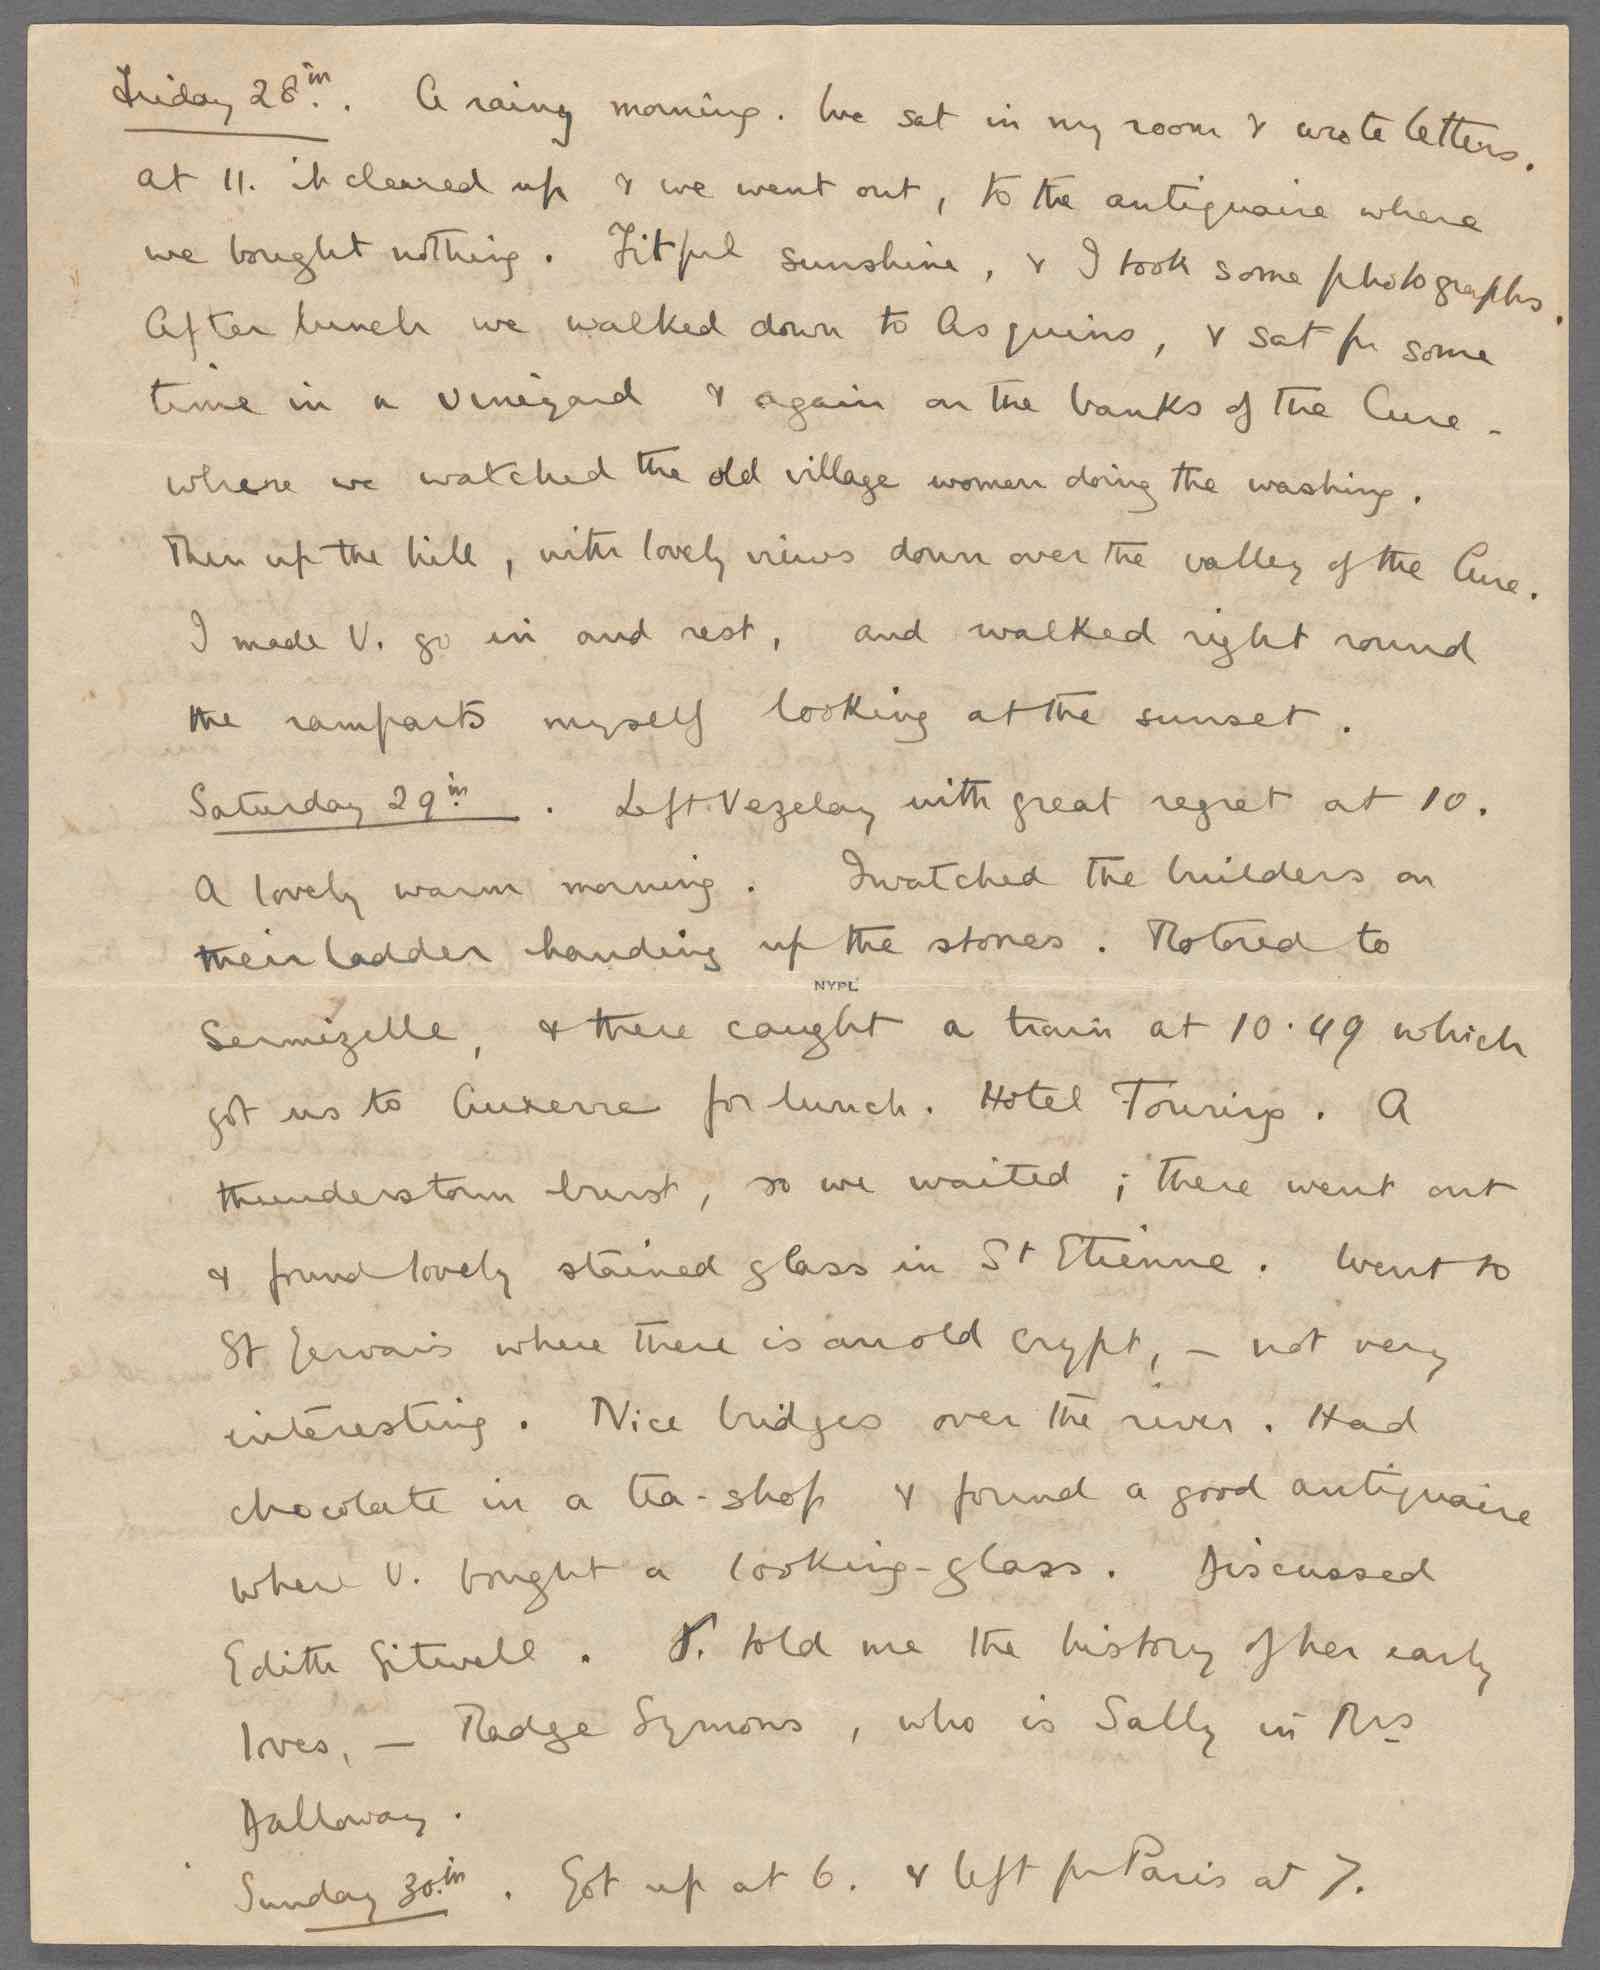 Friday 28th. A rainy morning. We sat in my room & wrote letters.
at 11. it cleared up & we went out, to the antiquaire where
we bought nothing. Fitful sunshine, & I took some photographs.
After lunch we walked down to Asquins, & sat for some
time in a vineyard & again on the banks of the Cure -
where we watched the old village women doing the washing.
Then up the hill, with lovely views down over the valley of the Cure.
I made V. go in and rest, and walked right round
the ramparts myself looking at the sunset.
Saturday 29th. Left Vezelay with great regret at 10.
A lovely warm morning. I watched the builders on
their ladder handing up the stones. Motored to
NYPL
Sermizelle, & there caught a train at 10.49 which
got us to Auxerre for lunch. Hotel Touring. A
thunderstorm burst, so we waited; there went out
& found lovely stained glass in St Etienne. Went to
St Gervais where there is an old crypt, – not very
interesting. Nice bridges over the river. Had
chocolate in a tea-shop & found a good antiquaire
where V. bought a looking-glass. Discussed
Edith Sitwell. V. told me the history of her early
loves, – Madge Symons, who is Sally in Mrs
Dalloway.
Sunday 30th. Got up at 6. & left for Paris at 7.